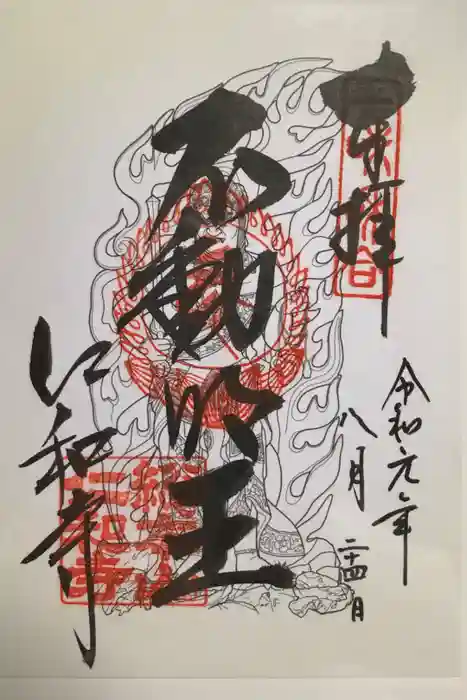 奉拝
令和元年
八月
二十四日
不動明王
仁和寺
仁和寺